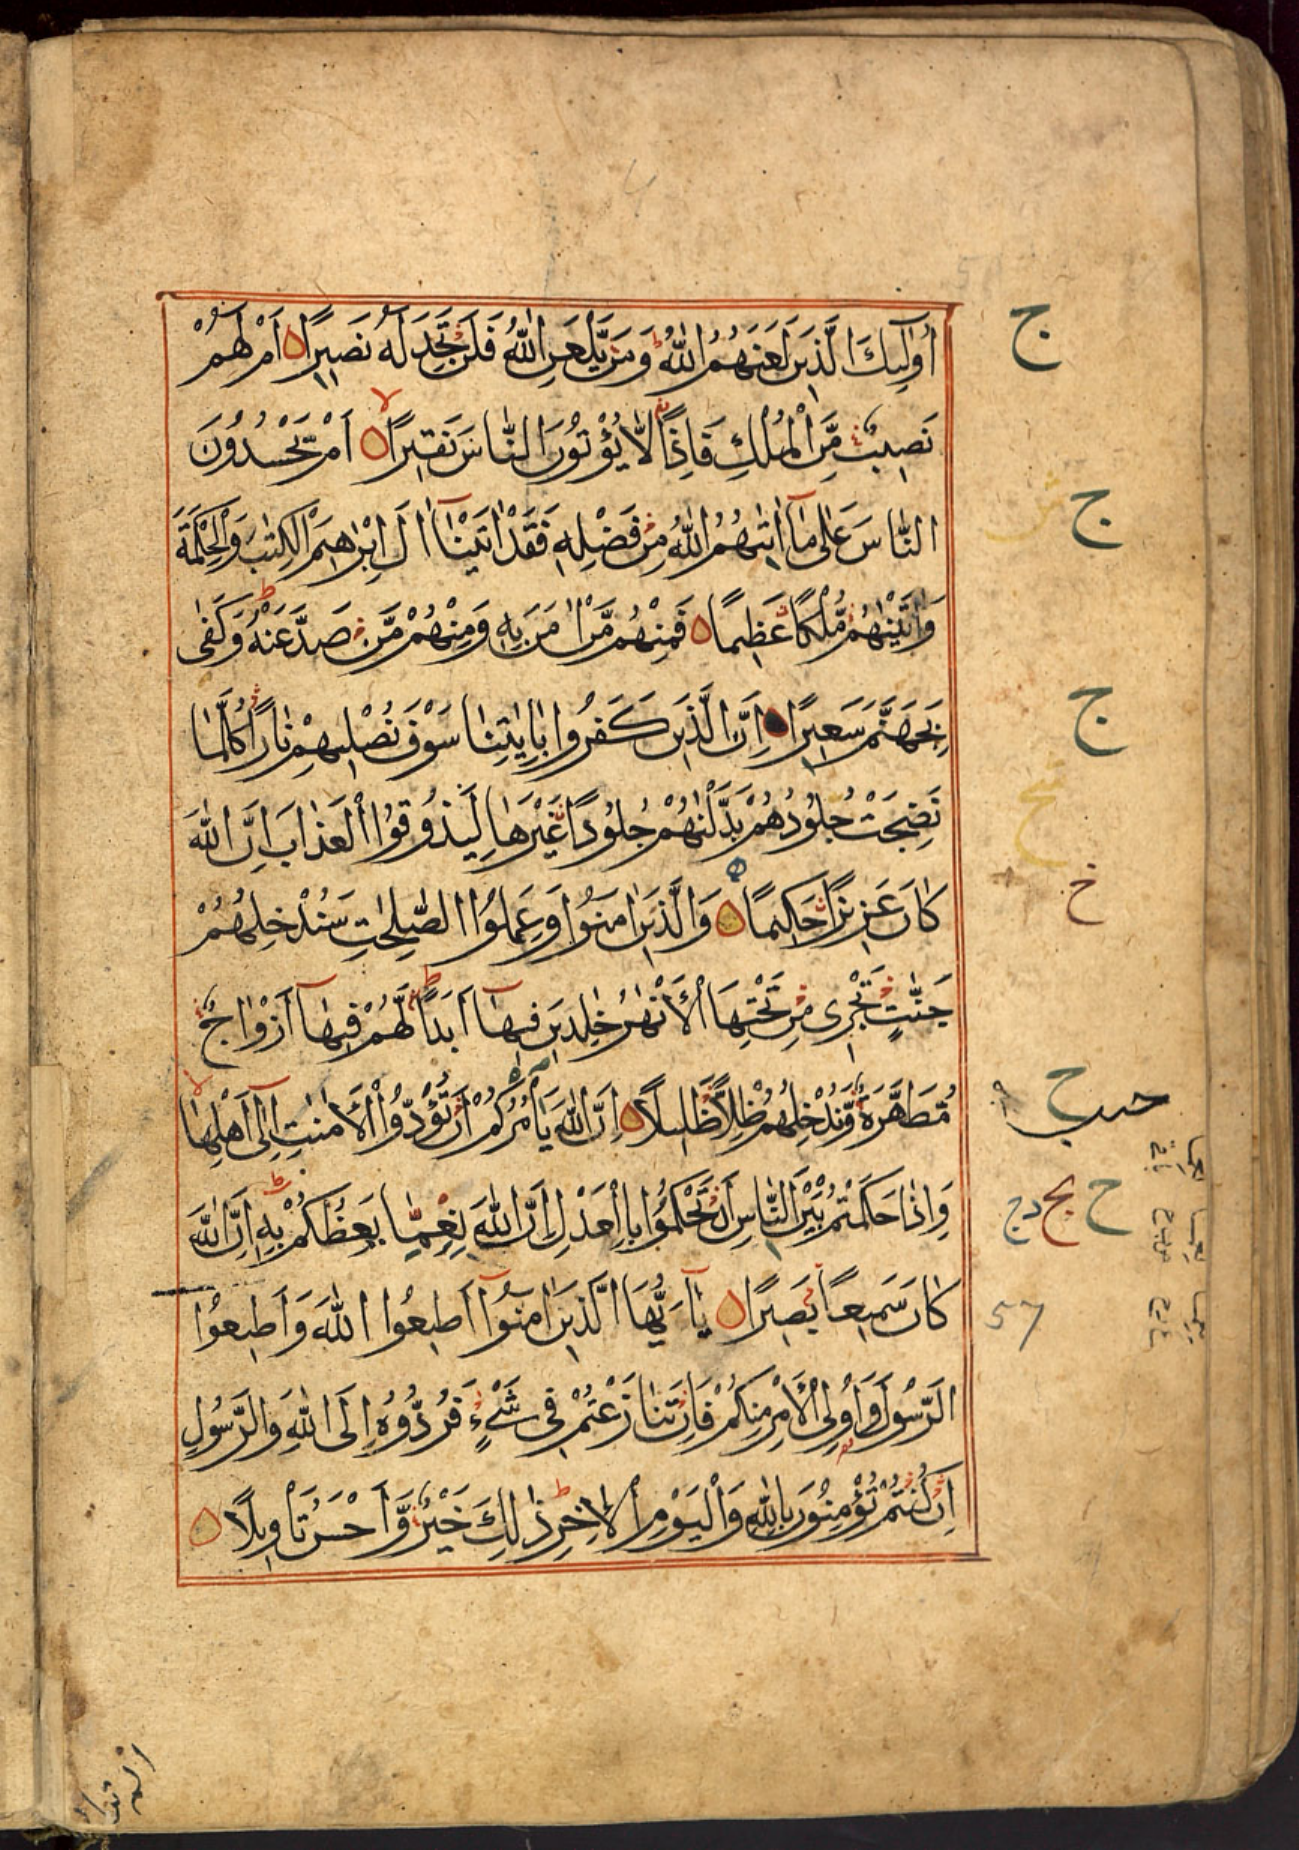 أُولٰٓئِكَ الَّذِينَ لَعَنَهُمُ اللّٰهُ ط وَمَنْ يَّلْعَنِ اللّٰهُ فَلَنْ تَجِدَ لَهُ نَصِيرًا اَمْ لَهُمْ
نَصِيبٌ مِّنَ الْمُلْكِ فَاِذًا لَّا يُؤْتُونَ النَّاسَ نَقِيرًا لا اَمْ يَحْسُدُونَ
النَّاسَ عَلٰى مَآ اٰتٰهُمُ اللّٰهُ مِنْ فَضْلِهٖ فَقَدْ اٰتَيْنَآ اٰلَ اِبْرٰهِيمَ الْكِتٰبَ وَالْحِكْمَةَ
وَاٰتَيْنٰهُمْ مُّلْكًا عَظِيمًا فَمِنْهُمْ مَّنْ اٰمَنَ بِهٖ وَمِنْهُمْ مَّنْ صَدَّ عَنْهُ ط وَكَفٰى
بِجَهَنَّمَ سَعِيرًا اِنَّ الَّذِينَ كَفَرُوا بِاٰيٰتِنَا سَوْفَ نُصْلِيهِمْ نَارًا كُلَّمَا
نَضِجَتْ جُلُودُهُمْ بَدَّلْنٰهُمْ جُلُودًا غَيْرَهَا لِيَذُوقُوا الْعَذَابَ اِنَّ اللّٰهَ
كَانَ عَزِيزًا حَكِيمًا وَالَّذِينَ اٰمَنُوا وَعَمِلُوا الصّٰلِحٰتِ سَنُدْخِلُهُمْ
جَنّٰتٍ تَجْرِى مِنْ تَحْتِهَا الْاَنْهٰرُ خٰلِدِينَ فِيهَآ اَبَدًا ط لَّهُمْ فِيهَآ اَزْوَاجٌ
مُّطَهَّرَةٌ وَّنُدْخِلُهُمْ ظِلًّا ظَلِيلًا اِنَّ اللّٰهَ يَأْمُرُكُمْ اَنْ تُؤَدُّوا الْاَمٰنٰتِ اِلٰٓى اَهْلِهَا لا
وَاِذَا حَكَمْتُمْ بَيْنَ النَّاسِ اَنْ تَحْكُمُوا بِالْعَدْلِ اِنَّ اللّٰهَ نِعِمَّا يَعِظُكُمْ بِهٖ ط اِنَّ اللّٰهَ
كَانَ سَمِيعًا بَصِيرًا يٰٓاَيُّهَا الَّذِينَ اٰمَنُوٓا اَطِيعُوا اللّٰهَ وَاَطِيعُوا
الرَّسُولَ وَاُولِى الْاَمْرِ مِنْكُمْ فَاِنْ تَنَازَعْتُمْ فِى شَىْءٍ فَرُدُّوهُ اِلَى اللّٰهِ وَالرَّسُولِ
اِنْ كُنْتُمْ تُؤْمِنُونَ بِاللّٰهِ وَالْيَوْمِ الْاٰخِرِ ط ذٰلِكَ خَيْرٌ وَّاَحْسَنُ تَأْوِيلًا
ج
ج
ج
خ
57